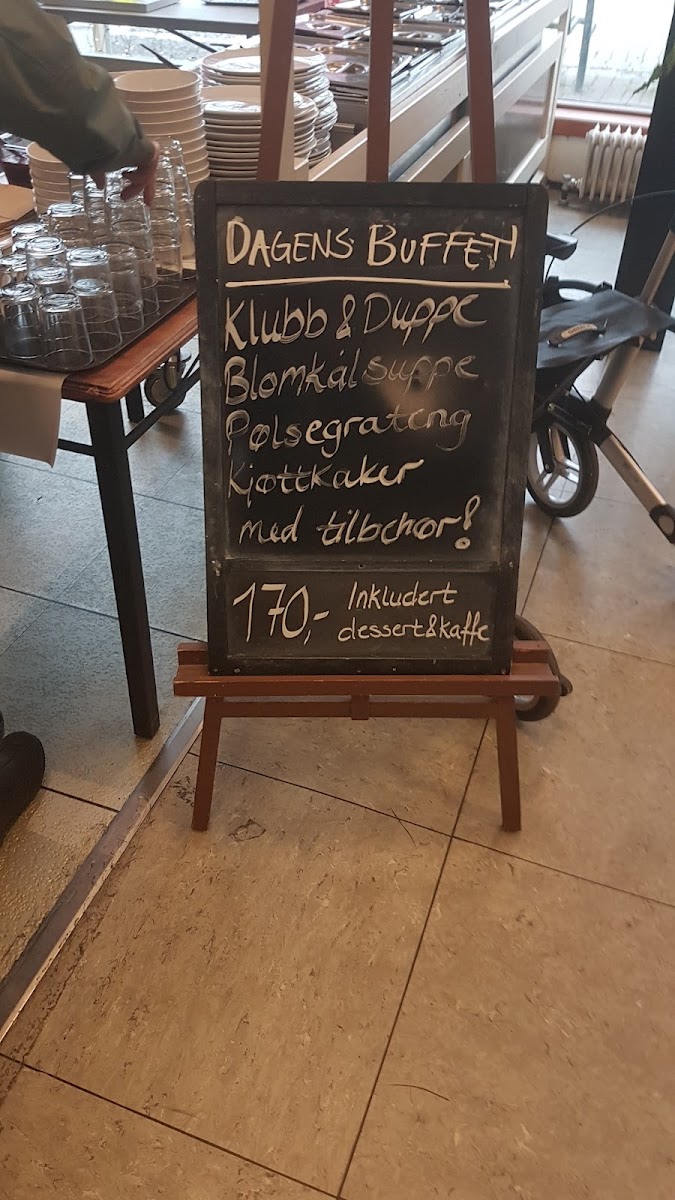 DAGENS BUFFET
Klubb & Duppe
Blomkålsuppe
Pølsegrateng
Kjøttkaker
med tilbehør!
170,- Inkludert
dessert & kaffe